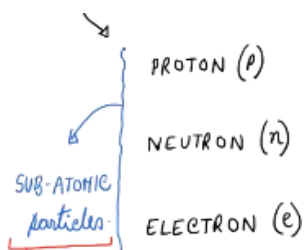 PROTON (p)
NEUTRON (n)
SUB-ATOMIC
particles.
ELECTRON (e)